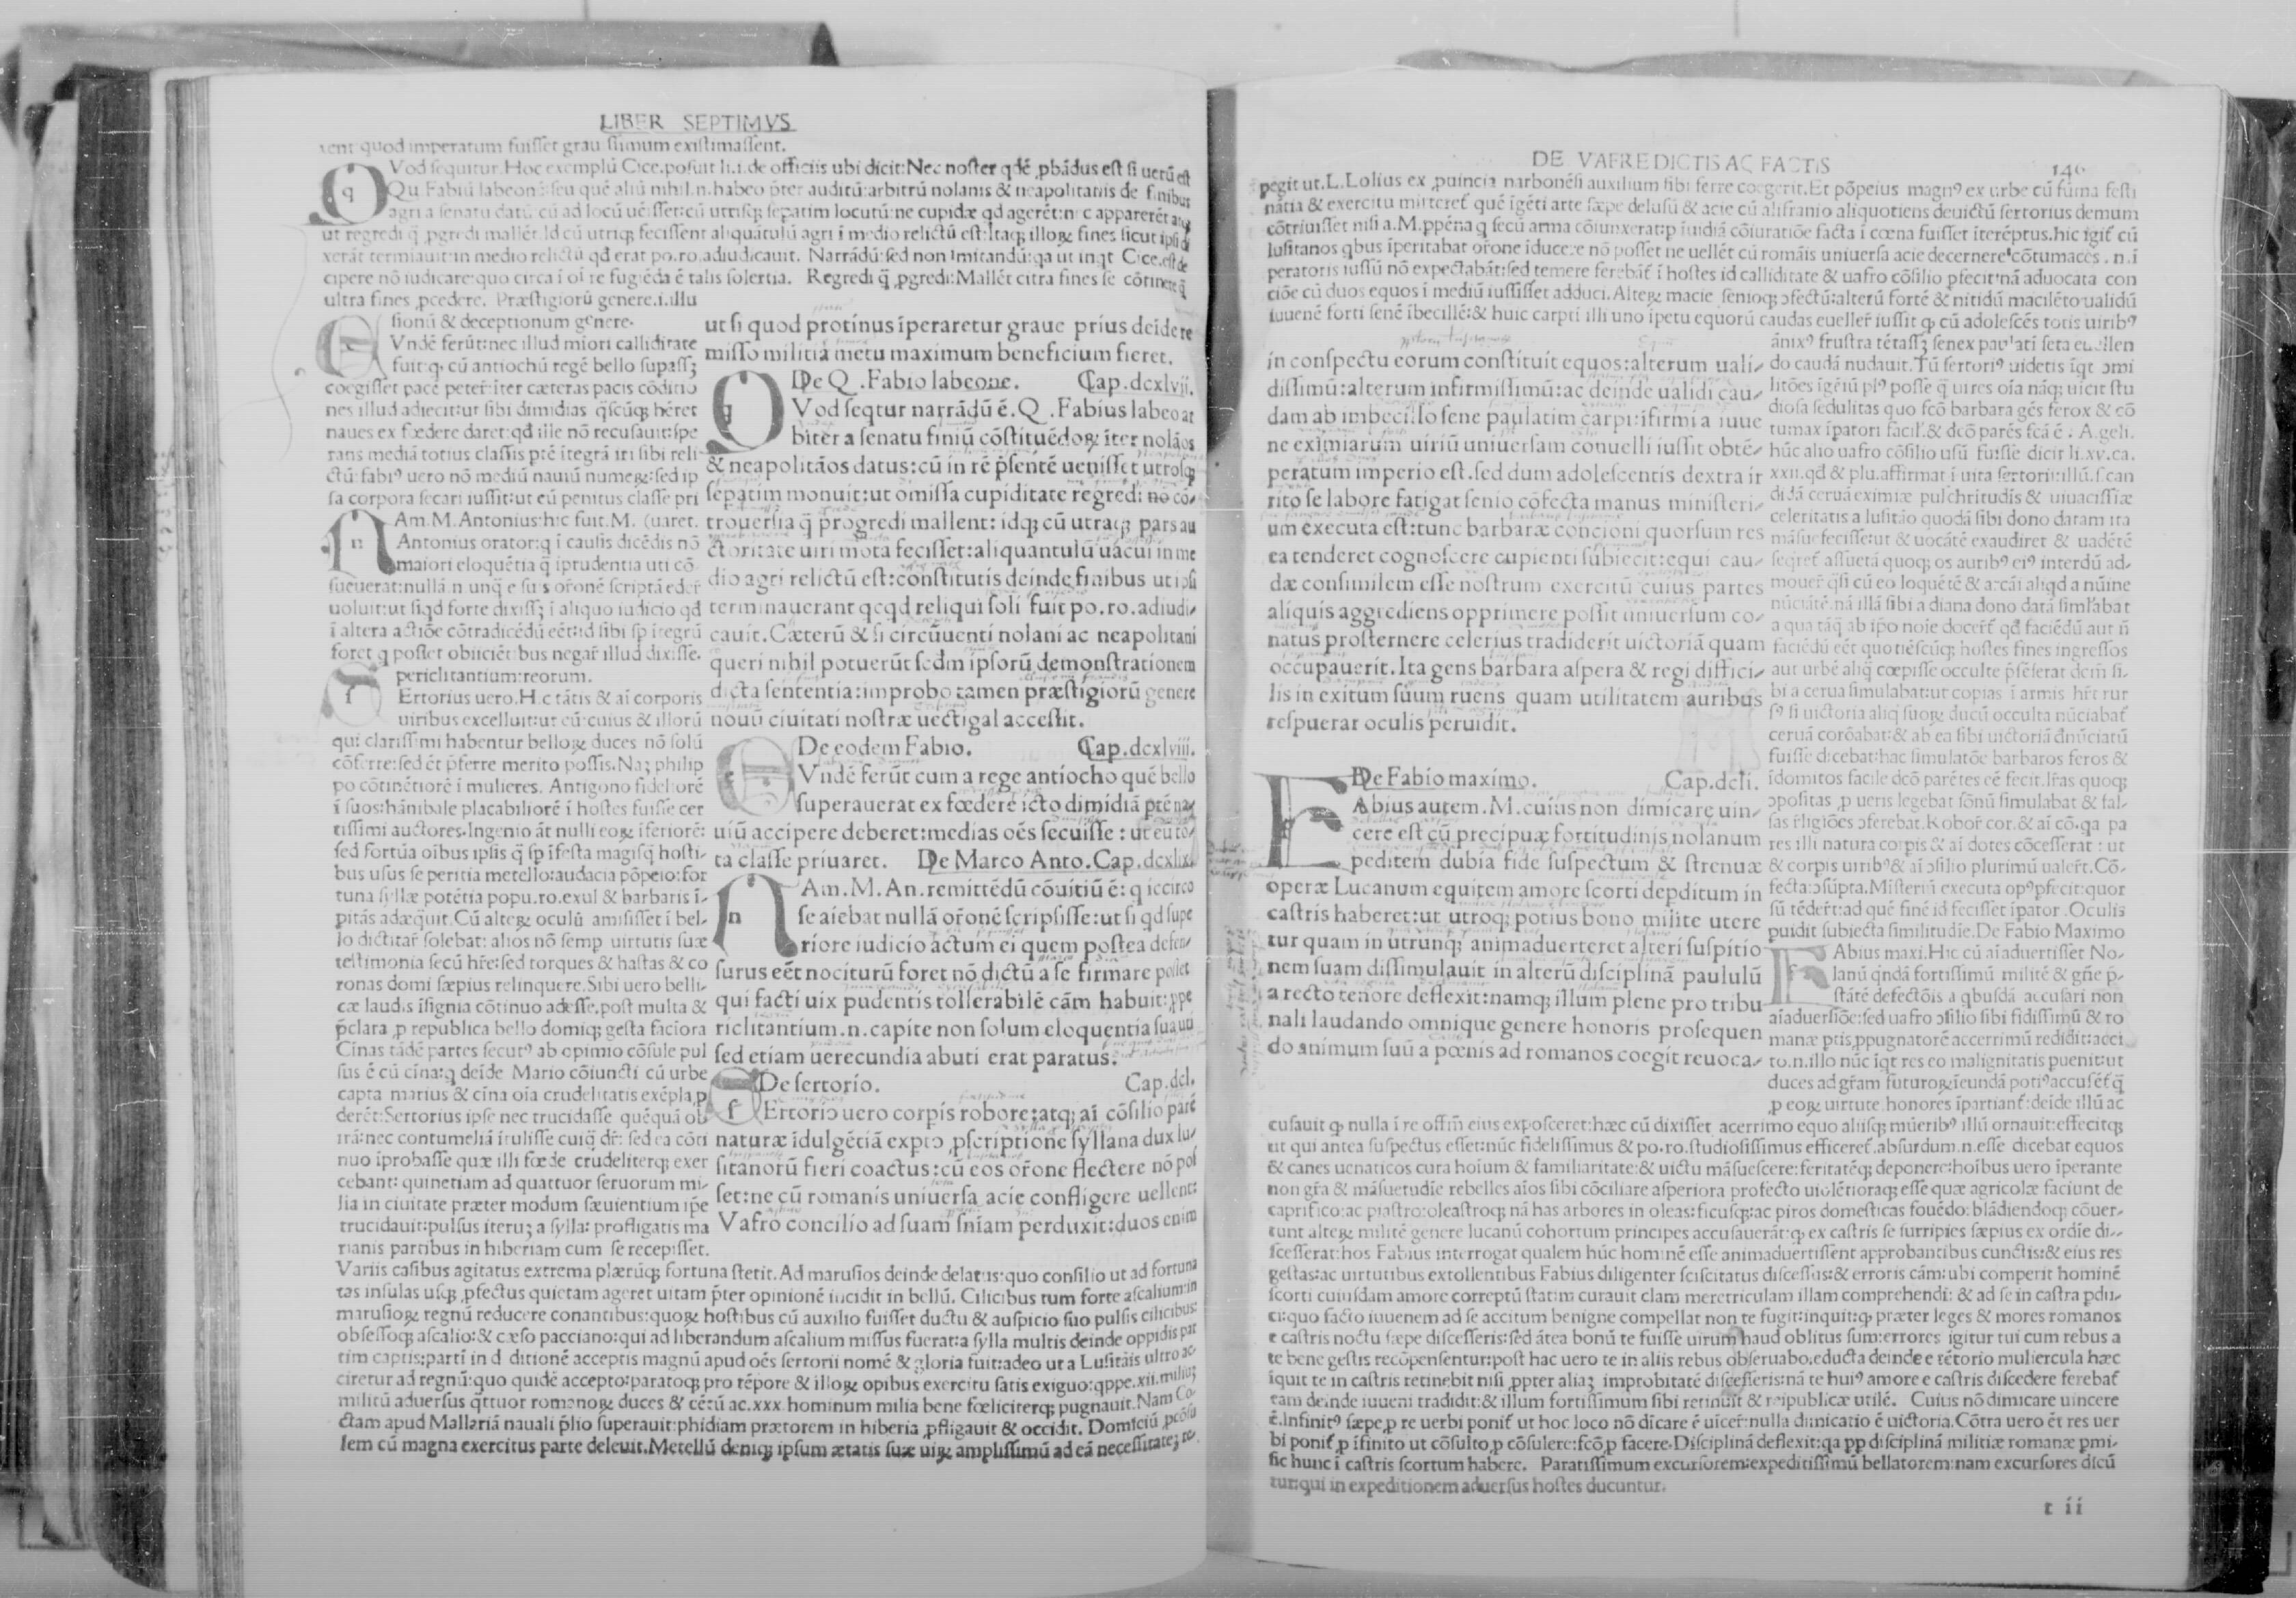 LIBER SEPTIMVS
quod imperatum fuisset grauissimum existimassent.
Vod sequitur. Hoc exemplũ Cice. posuit li.i. de officiis ubi dicit: Nec noster qdẽ ꝓbãdus est si uerũ est
Qu Fabiũ labeonẽ: seu quẽ aliũ nihil.n. habeo p̃ter auditũ: arbitrũ nolanis & neapolitanis de finibus
agri a senatu datũ cũ ad locũ uẽisset: cũ utrisq; sepatim locutũ: ne cupidæ qd agerẽt: n c appareret
ut regredi q̃ ꝓgredi mallẽt. Id cũ utriq; fecissent aliquãtulũ agri ĩ medio relictũ est: Itaq; illoꝝ fines sicut ipsi
xerãt termiauit: in medio relictũ qd erat po.ro. adiudicauit. Narrãdũ: sed non imitandũ: qa ut inqt Cice. est de
cipere nõ iudicare: quo circa ĩ oĩ re fugiẽda ẽ talis solertia. Regredi q̃ ꝓgredi: Mallẽt citra fines se cõtinere q̃
ultra fines ꝓcedere. Præstigiorũ genere.i. illu
sionũ & deceptionum genere.
Vndẽ ferũt: nec illud miori calliditate
fuit: q. cũ antiochũ regẽ bello supass;
coegisset pacẽ peter̃: iter cæteras pacis cõditio
nes illud adiecit: ut sibi dimidias q̃scũq; hẽret
naues ex fœdere daret: qd ille nõ recusauit: spe
rans mediã totius classis ptẽ ĩtegrã iri sibi reli
ctũ: fabiꝰ uero nõ mediũ nauiũ numeꝝ: sed ip
sa corpora secari iussit: ut eũ penitus classe pri
Am. M. Antonius: hic fuit. M. (uaret.
Antonius orator: q ĩ causis dicẽdis nõ
maiori eloquẽtia q̃ ĩprudentia uti cõ
sueuerat: nullã.n. unq̃ e suis or̃onẽ scriptã eder̃
uoluit: ut siqd forte dixiss; ĩ aliquo iudicio qd
ĩ altera actiõe cõtradicẽdũ eẽt: id sibi sp̃ ĩtegrũ
foret q posset obiiciẽtibus negar̃ illud dixisse.
periclitantium: reorum.
Ertorius uero. H c tãtis & aĩ corporis
uiribus excelluit: ut cũ: cuius & illorũ
qui clarissimi habentur belloꝝ duces nõ solũ
cõferre: sed ẽt p̃ferre merito possis. Na; philip
po cõtinẽtiorẽ ĩ mulieres. Antigono fideliorẽ
ĩ suos: hãnibale placabiliorẽ ĩ hostes fuisse cer
tissimi auctores. Ingenio ãt nulli eoꝝ ĩferiorẽ:
sed fortũa oĩbus ipsis q̃ sp̃ ĩfesta magisq̃ hosti-
bus usus se peritia metello: audacia põpeio: for
tuna syllæ potẽtia popu.ro. exul & barbaris ĩ-
pitãs adæq̃uit. Cũ alteꝝ oculũ amisisset ĩ bel-
lo dictitar̃ solebat: alios nõ semp uirtutis suæ
testimonia secũ hr̃e: sed torques & hastas & co
ronas domi sæpius relinquere. Sibi uero belli-
cæ laudis ĩsignia cõtinuo adesse. post multa &
p̃clara ꝓ republica bello domiq; gesta faciora
Cinas tãdẽ partes secutꝰ ab opimio cõsule pul
sus ẽ cũ cĩna: q deĩde Mario cõiuncti cũ urbe
capta marius & cĩna oĩa crudelitatis exẽpla ꝓ
derẽt: Sertorius ipse nec trucidasse quẽquã ob
irã: nec contumeliã ĩtulisse cuiq̃ dr̃: sed ea cõti
nuo ĩprobasse quæ illi fœde crudeliterq; exer
cebant: quinetiam ad quattuor seruorum mi-
lia in ciuitate præter modum sæuientium ip̃e
trucidauit: pulsus iteru; a sylla: profligatis ma
rianis partibus in hiberiam cum se recepisset.
ut si quod protinus ĩperaretur graue prius deĩde re
misso militiã metu maximum beneficium fieret.
De Q. Fabio labeone. Cap. dcxlvii.
Vod seqtur narrãdũ ẽ. Q. Fabius labeo ar
biter a senatu finiũ cõstituẽdoꝝ ĩter nolãos
& neapolitãos datus: cũ in rẽ p̃sentẽ uenisset utrosq;
sepatim monuit: ut omissa cupiditate regredi no cõ-
trouersia q̃ progredi mallent: idq; cũ utraq; pars au
ctoritate uiri mota fecisset: aliquantulũ uacui in me
dio agri relictũ est: constitutis deinde finibus ut ipsi
terminauerant qcqd reliqui soli fuit po.ro. adiudi-
cauit. Cæterũ & si circũuenti nolani ac neapolitani
queri nihil potuerũt sedm ipsorũ demonstrationem
dicta sententia: improbo tamen præstigiorũ genere
nouũ ciuitati nostræ uectigal accessit.
De eodem Fabio. Cap. dcxlviii.
Vndẽ ferũt cum a rege antiocho quẽ bello
superauerat ex fœdere icto dimidiã ptẽ na-
uiũ accipere deberet: medias oẽs secuisse: ut eũ to-
ta classe priuaret. De Marco Anto. Cap. dcxlix.
Am. M. An. remittẽdũ cõuitiũ ẽ: q iccirco
se aiebat nullã or̃onẽ scripsisse: ut si qd supe
riore iudicio actum ei quem postea defen-
surus eẽt nociturũ foret nõ dictũ a se firmare posset
qui facti uix pudentis tollerabilẽ cãm habuit: ꝓpe
riclitantium.n. capite non solum eloquentia sua uti
sed etiam uerecundia abuti erat paratus.
De sertorio. Cap. dcl.
Ertorio uero corpis robore: atq; aĩ cõsilio parẽ
naturæ ĩdulgẽtiã expto ꝓscriptione syllana dux lu-
sitanorũ fieri coactus: cũ eos or̃one flectere nõ pos
set: ne cũ romanis uniuersa acie confligere uellent:
Vafro concilio ad suam sñiam perduxit: duos enim
Variis casibus agitatus extrema plærũq; fortuna stetit. Ad marusios deinde delatus: quo consilio ut ad fortuna
tas insulas usq; ꝓfectus quietam ageret uitam p̃ter opinionẽ incidit in bellũ. Cilicibus tum forte ascalium: in
marusioꝝ regnũ reducere conantibus: quoꝝ hostibus cũ auxilio fuisset ductu & auspicio suo pulsis cilicibus:
obsessoq; ascalio: & cæso pacciano: qui ad liberandum ascalium missus fuerat: a sylla multis deinde oppidis par
tim captis: partĩ in d ditionẽ acceptis magnũ apud oẽs sertorii nomẽ & gloria fuit: adeo ut a Lusitãis ultro ac-
ciretur ad regnũ: quo quidẽ accepto: paratoq; pro tẽpore & illoꝝ opibus exercitu satis exiguo: qppe. xii. milio;
militũ aduersus q̃ttuor romanoꝝ duces & cẽtũ ac. xxx. hominum milia bene fœliciterq; pugnauit. Nam Co-
ctam apud Mallariã nauali p̃lio superauit: phidiam prætorem in hiberia ꝓfligauit & occidit. Domiciũ ꝓcõsu
lem cũ magna exercitus parte deleuit. Metellũ deniq; ipsum ætatis suæ uiꝝ amplissimũ ad eã necessitate; re
DE VAFRE DICTIS AC FACTIS 146
pegit ut. L. Lolius ex ꝓuincia narbonẽsi auxilium sibi ferre coegerit. Et põpeius magnꝰ ex urbe cũ fũma festi
nãtia & exercitu mitteret̃ quẽ ĩgẽti arte sæpe delusũ & acie cũ alifranio aliquotiens deuictũ sertorius demum
cõtriuisset nisi a. M. ꝑpẽna q secũ arma cõiunxerat: ꝑ ĩuidiã cõiuratiõe facta ĩ cœna fuisset ĩterẽptus. hic igit̃ cũ
lusitanos qbus ĩperitabat or̃one ĩducere nõ posset ne uellẽt cũ romãis uniuersa acie decernere cõtumaces.n. ĩ
peratoris iussũ nõ expectabãt: sed temere ferebãt̃ ĩ hostes id calliditate & uafro cõsilio pfecit: nã aduocata con
ciõe cũ duos equos ĩ mediũ iussisset adduci. Alteꝝ macie senioq; ↄfectũ: alterũ fortẽ & nitidũ macilẽto ualidũ
iuuenẽ forti senẽ ĩbecillẽ: & huic carpti illi uno ĩpetu equorũ caudas eueller̃ iussit q cũ adolescẽs totis uiribꝰ
in conspectu eorum constituit equos: alterum uali-
dissimũ: alterum infirmissimũ: ac deinde ualidi cau-
dam ab imbecillo sene paulatim carpi: ĩfirmi a iuue
ne eximiarum uiriũ uniuersam conuelli iussit obtẽ-
peratum imperio est. sed dum adolescentis dextra ir
rito se labore fatigat senio cõfecta manus ministeri-
um executa est: tunc barbaræ concioni quorsum res
ea tenderet cognoscere cupienti subiecit: equi cau-
dæ consimilem esse nostrum exercitũ cuius partes
aliquis aggrediens opprimere possit uniuersum co-
natus prosternere celerius tradiderit uictoriã quam
occupauerit. Ita gens barbara aspera & regi diffici-
lis in exitum suum ruens quam utilitatem auribus
respuerar oculis peruidit.
De Fabio maximo. Cap. dcli.
Abius autem. M. cuius non dimicare uin-
cere est cũ precipuæ fortitudinis nolanum
peditem dubia fide suspectum & strenuæ
operæ Lucanum equitem amore scorti depditum in
castris haberet: ut utroq; potius bono milite utere
tur quam in utrunq; animaduerteret alteri suspitio
nem suam dissimulauit in alterũ disciplinã paululũ
a recto tenore deflexit: namq; illum plene pro tribu
nali laudando omnique genere honoris prosequen
do animum suũ a pœnis ad romanos coegit reuoca-
ãnixꝰ frustra tẽtass; senex paulatĩ seta euellen
do caudã nudauit. Tũ sertoriꝰ uidetis ĩqt ↄmi
litões ĩgẽiũ plꝰ posse q̃ uires oĩa nãq; uicit stu
diosa sedulitas quo fcõ barbara gẽs ferox & cõ
tumax ĩpatori facil̃. & dcõ parẽs fcã ẽ. A. geli.
hũc alio uafro cõsilio usũ fuisse dicit li.xv.ca.
xxii. qd & plu. affirmat ĩ uita sertorii: illũ.s. can
didã ceruã eximiæ pulchritudis & uiuacissiæ
celeritatis a lusitão quodã sibi dono datam ita
mãsuefecisse: ut & uocãtẽ exaudiret & uadẽtẽ
seqret̃ assuetã quoq; os auribꝰ eiꝰ interdũ ad-
mouer̃ q̃si cũ eo loquẽtẽ & arcãi aliqd a nũine
nũciãtẽ. nã illã sibi a diana dono datã siml̃abat
a qua tãq̃ ab ip̃o noĩe docert̃ qd faciẽdũ aut ñ
faciẽdũ eẽt quotiẽscũq; hostes fines ingressos
aut urbẽ aliq̃ cœpisse occulte p̃sẽserat dem̃ si-
bi a cerua simulabat: ut copias ĩ armis hr̃et rur
sꝰ si uictoria aliq̃ suoꝝ ducũ occulta nũciabat̃
ceruã corõabat: & ab ea sibi uictoriã dnũciatũ
fuisse dicebat: hac simulatõe barbaros feros &
ĩdomitos facile dcõ parẽtes eẽ fecit. lr̃as quoq;
ↄpositas ꝓ ueris legebat sõnũ simulabat & fal-
sas r̃ligiões ↄferebat. Robor̃ cor. & aĩ cõ. qa pa
res illi natura corpis & aĩ dotes cõcesserat: ut
& corpis uiribꝰ & aĩ ↄsilio plurimũ ualer̃t. Cõ-
fecta: ↄsũpta. Misteriũ executa opꝰ pfecit: quor
sũ tẽder̃t: ad quẽ finẽ id fecisset ĩpator. Oculis
puidit subiecta similitudĩe. De Fabio Maximo
Abius maxi. Hic cũ aĩaduertisset No-
lanũ qñdã fortissimũ militẽ & gñe p̃-
stãtẽ defectõis a qbusdã accusari non
aĩaduersiõe: sed uafro ↄsilio sibi fidissimũ & ro
manæ ptis ꝓpugnatorẽ accerrimũ redidit: acci
to.n. illo nũc ĩqt res eo malignitatis puenit: ut
duces ad gr̃am futuroꝝ ĩeundã potiꝰ accusẽt̃ q̃
ꝓ eoꝝ uirtute honores ĩpartiant̃: deĩde illũ ac
cusauit q nulla ĩ re offim̃ eius exposceret: hæc cũ dixisset acerrimo equo aliisq; mũeribꝰ illũ ornauit: effecitq;
ut qui antea suspectus esset: nũc fidelissimus & po.ro. studiosissimus efficeret̃. absurdum.n. esse dicebat equos
& canes uenaticos cura hoĩum & familiaritate: & uictu mãsuescere: feritatẽq; deponere: hoĩbus uero ĩperante
non gr̃a & mãsuetudĩe rebelles aĩos sibi cõciliare asperiora profecto uiolẽtioraq; esse quæ agricolæ faciunt de
caprifico: ac piastro: oleastroq; nã has arbores in oleas: ficusq;: ac piros domesticas fouẽdo: blãdiendoq; cõuer-
tunt alteꝝ militẽ genere lucanũ cohortum principes accusauerãt: q ex castris se surripiẽs sæpius ex ordĩe di-
scesserat: hos Fabius interrogat qualem hũc hominẽ esse animaduertissent approbantibus cunctis: & eius res
gestas: ac uirtutibus extollentibus Fabius diligenter sciscitatus discessus: & erroris cãm: ubi comperit hominẽ
scorti cuiusdam amore correptũ statim curauit clam meretriculam illam comprehendi: & ad se in castra pdu-
ci: quo facto iuuenem ad se accitum benigne compellat non te fugit: inquit: q præter leges & mores romanos
e castris noctu sæpe discesseris: sed ãtea bonũ te fuisse uirum haud oblitus sum: errores igitur tui cum rebus a
te bene gestis recõpensentur: post hac uero te in aliis rebus obseruabo. educta deinde e tẽtorio muliercula hæc
ĩquit te in castris retinebit nisi ꝓpter alia; improbitatẽ discesseris: nã te huiꝰ amore e castris discedere ferebat̃
tam deinde iuueni tradidit: & illum fortissimum sibi retinuit & reipublicæ utilẽ. Cuius nõ dimicare uincere
ẽ. Infinitꝰ sæpe ꝓ re uerbi ponit̃ ut hoc loco nõ dicare ẽ uicer̃: nulla dimicatio ẽ uictoria. Cõtra uero ẽt res uer
bi ponit̃ ꝓ ĩfinito ut cõsulto ꝓ cõsulere: fcõ ꝓ facere. Disciplinã deflexit: qa pp disciplinã militiæ romanæ pmi-
sic hunc ĩ castris scortum habere. Paratissimum excursorem: expeditissimũ bellatorem: nam excursores dicũ
tur: qui in expeditionem aduersus hostes ducuntur.
r ii